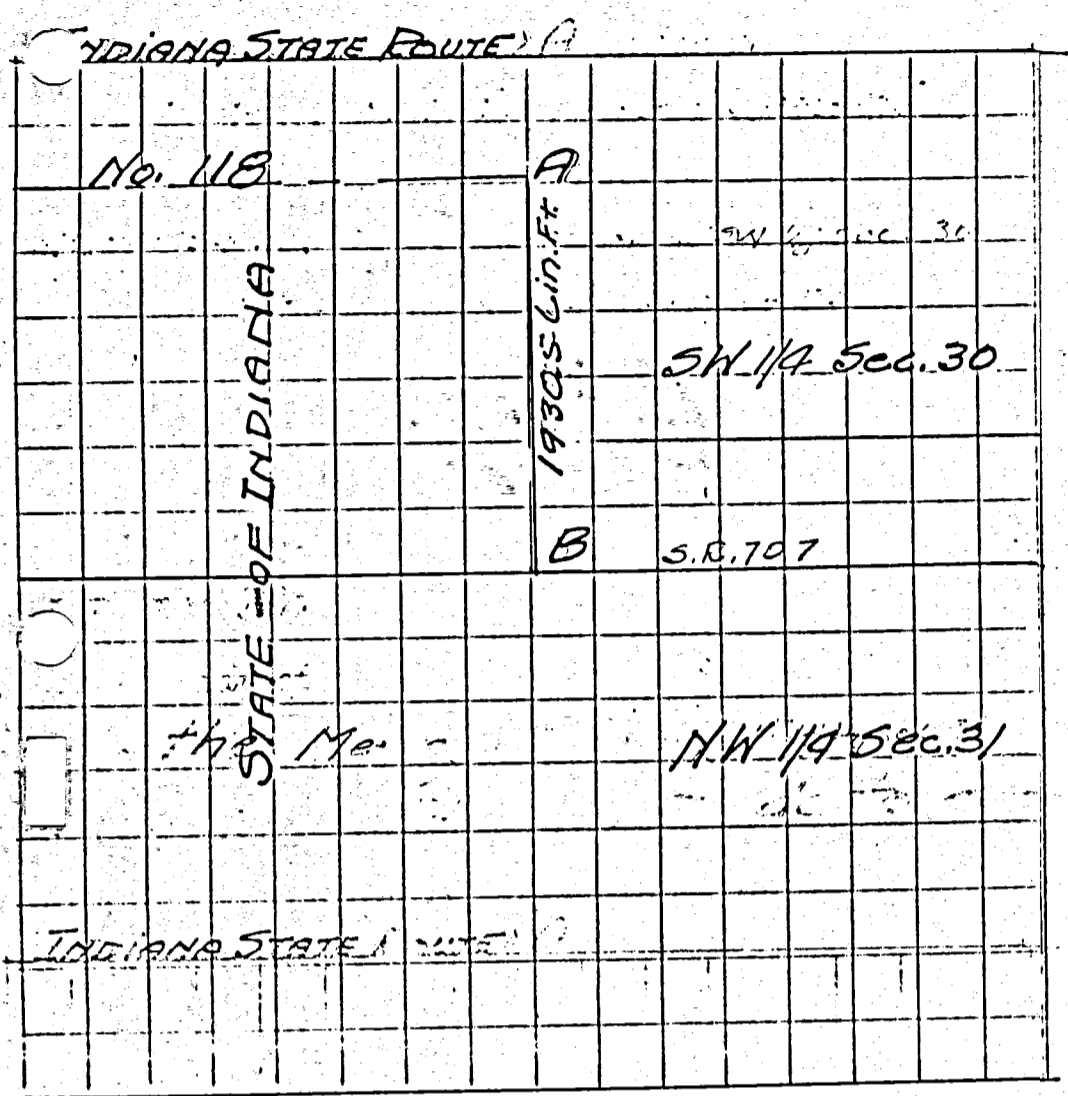 INDIANA STATE ROUTE
No. 118
A
STATE OF INDIANA
1930.5 Lin. Ft.
SW 1/4 Sec. 30
B
S.R. 707
the Me
N.W 1/4 Sec. 31
INDIANA STATE